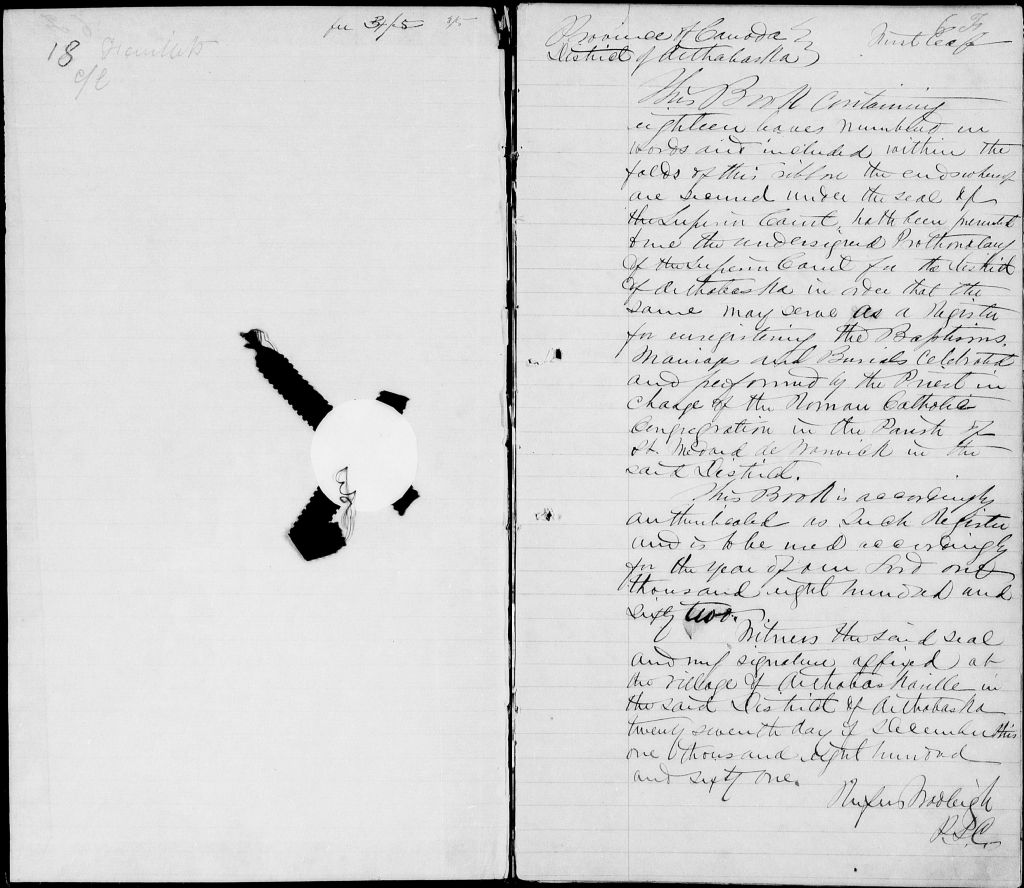 18 Feuillets
fee 3/5 3/5
Province of Canada
District of Arthabaska
First leaf
This Book containing
eighteen leaves numbered in
words and included within the
folds of this ribbon the ends whereof
are secured under the seal of
the Superior Court, hath been presented
to me the undersigned Prothonotary
of the Superior Court for the District
of Arthabaska in order that the
same may serve as a Register
for enregistering the Baptisms,
Marriages and Burials celebrated
and performed by the Priest in
charge of the Roman Catholic
Congregation in the Parish of
St. Medard de Warwick in the
said District.
This Book is accordingly
authenticated as such Register
and is to be used accordingly
for the year of our Lord one
thousand eight hundred and
sixty two.
Witness the said seal
and my signature affixed at
the village of Arthabaskaville in
the said District of Arthabaska
twenty seventh day of December this
one thousand eight hundred
and sixty one.
Rufus Wadleigh
P.S.C.